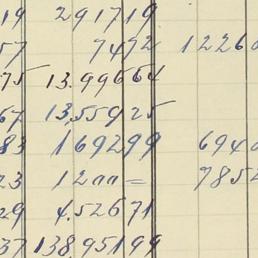 19 291719
57 7472 12260
75 13.99664
67 13,55925
83 169299 6940
23 1200 = 7852
29 4,52671
37 138,95199